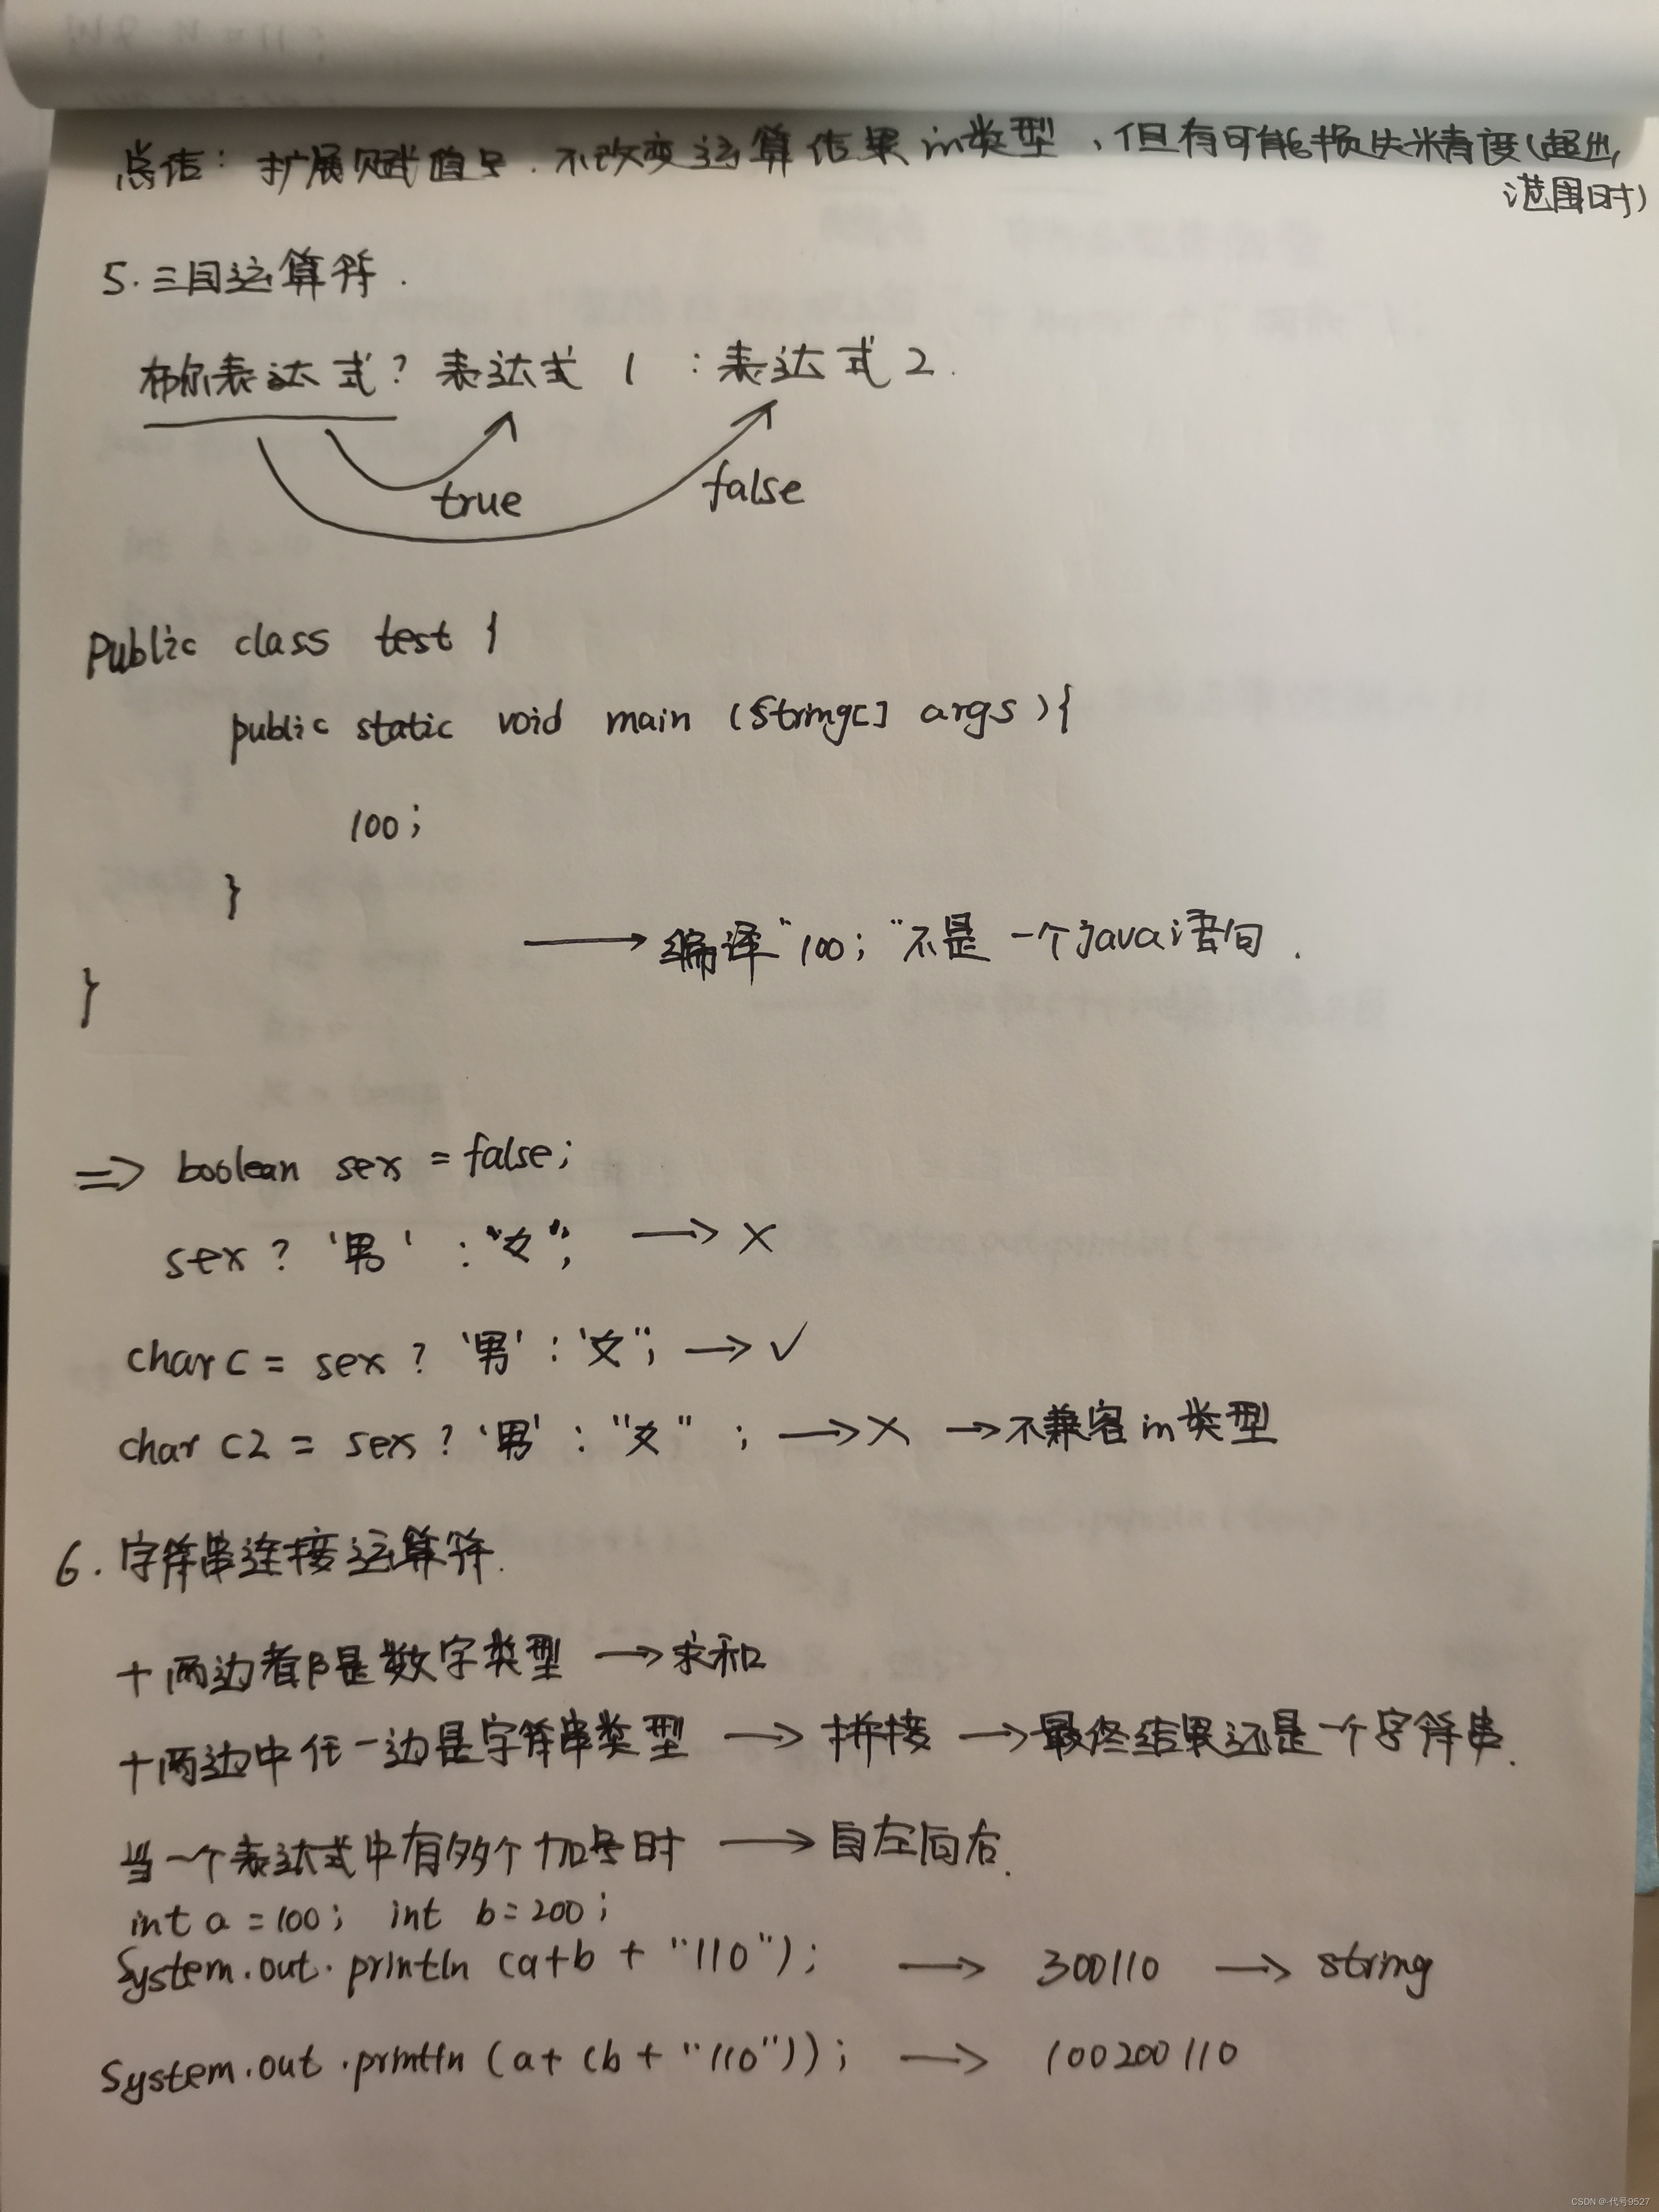 总结: 扩展赋值号. 不改变运算结果in类型, 但有可能损失精度(超出
范围时)
5. 三目运算符.
布尔表达式? 表达式 1 : 表达式 2.
true
false
Public class test {
public static void main (String[] args){
100;
}
→ 编译 "100; "不是一个java语句.
}
=> boolean sex = false;
sex ? '男' : "女"; → ×
char c = sex ? '男' : '女"; → √
char c2 = sex ? '男' : "女" ; → × → 不兼容in类型
6. 字符串连接运算符.
+ 两边都是数字类型 → 求和
+ 两边中任一边是字符串类型 → 拼接 → 最终结果还是一个字符串.
当一个表达式中有多个加号时 → 自左向右.
int a = 100; int b = 200;
System.out.println (a+b + "110"); → 300110 → string
System.out.println (a+ (b + "110")); → 100200110
CSDN @代号9527